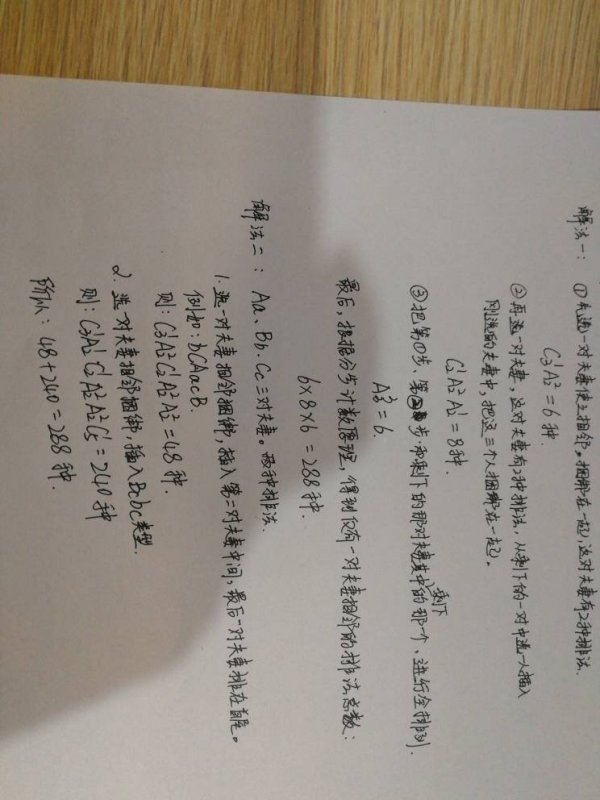 解法一：①先选一对夫妻使之相邻，捆绑在一起，这对夫妻有2种排法。
C₃¹A₂²=6种.
②再选一对夫妻，这对夫妻有2种排法，从剩下的一对中选一人插入
刚选的夫妻中，把这三个人捆绑在一起。
C₂¹A₂²A₂¹=8种.
③把第①步、第②步和剩下的那对夫妻其中剩下的那一个，进行全排列.
A₃³=6.
最后，根据分步计数原理，得到仅有一对夫妻相邻的排法总数：
6×8×6=288种.
解法二：Aa、Bb、Cc三对夫妻。两种排法.
1. 选一对夫妻相邻捆绑，插入第二对夫妻中间，最后一对夫妻排在首尾。
例如：bCAacB.
则：C₃¹A₂²C₂¹A₂²A₂²=48种.
2. 选一对夫妻相邻捆绑，插入BcbC类型.
则：C₃¹A₂²C₂¹A₂²A₂²C₅¹=240种
所以：48+240=288种.